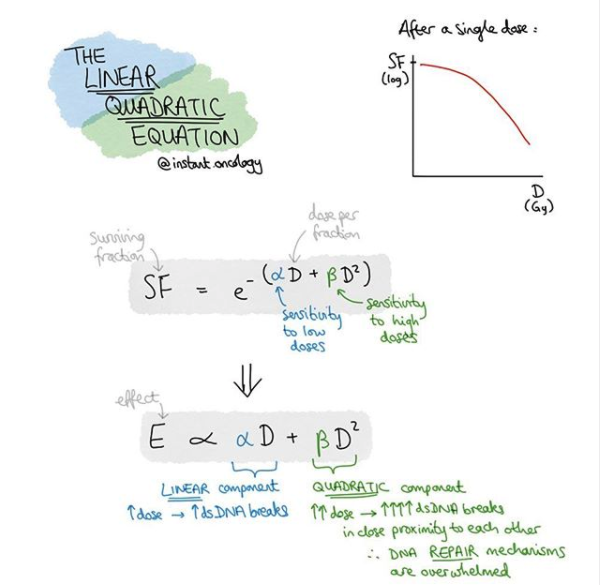 THE
LINEAR
QUADRATIC
EQUATION
@instant.oncology
After a single dose :
SF
(log)
D
(Gy)
surviving
fraction
dose per
fraction
SF = e^-(αD + βD²)
sensitivity
to low
doses
sensitivity
to high
doses
⇓
effect
E ∝ αD + βD²
LINEAR component
↑dose → ↑dsDNA breaks
QUADRATIC component
↑↑dose → ↑↑↑↑dsDNA breaks
in close proximity to each other
∴ DNA REPAIR mechanisms
are overwhelmed